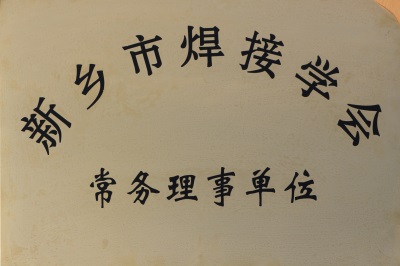 新乡市焊接学会
常务理事单位